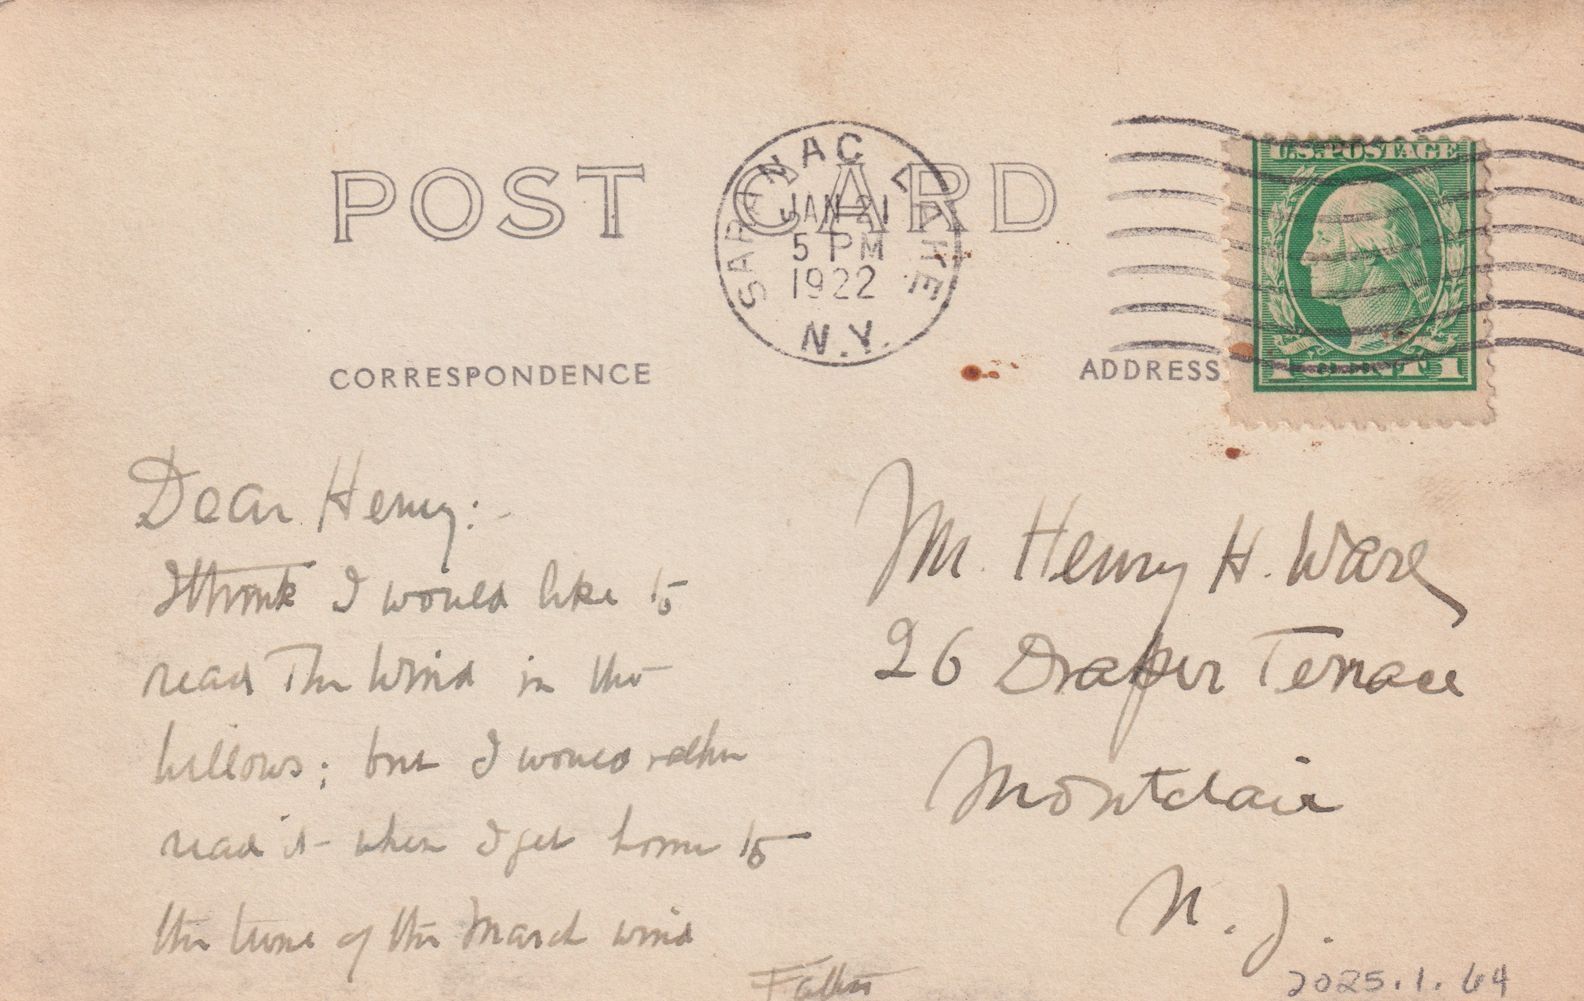 POST CARD
SARANAC LAKE
JAN 21
5 PM
1922
N.Y.
U.S. POSTAGE
1 1
CORRESPONDENCE
ADDRESS
Dear Henry:-
I think I would like to
read The Wind in the
Willows; but I would rather
read it when I get home to
the tune of the March wind
Father
Mr. Henry H. Ware
26 Draper Terrace
Montclair
N. J.
2025.1.64